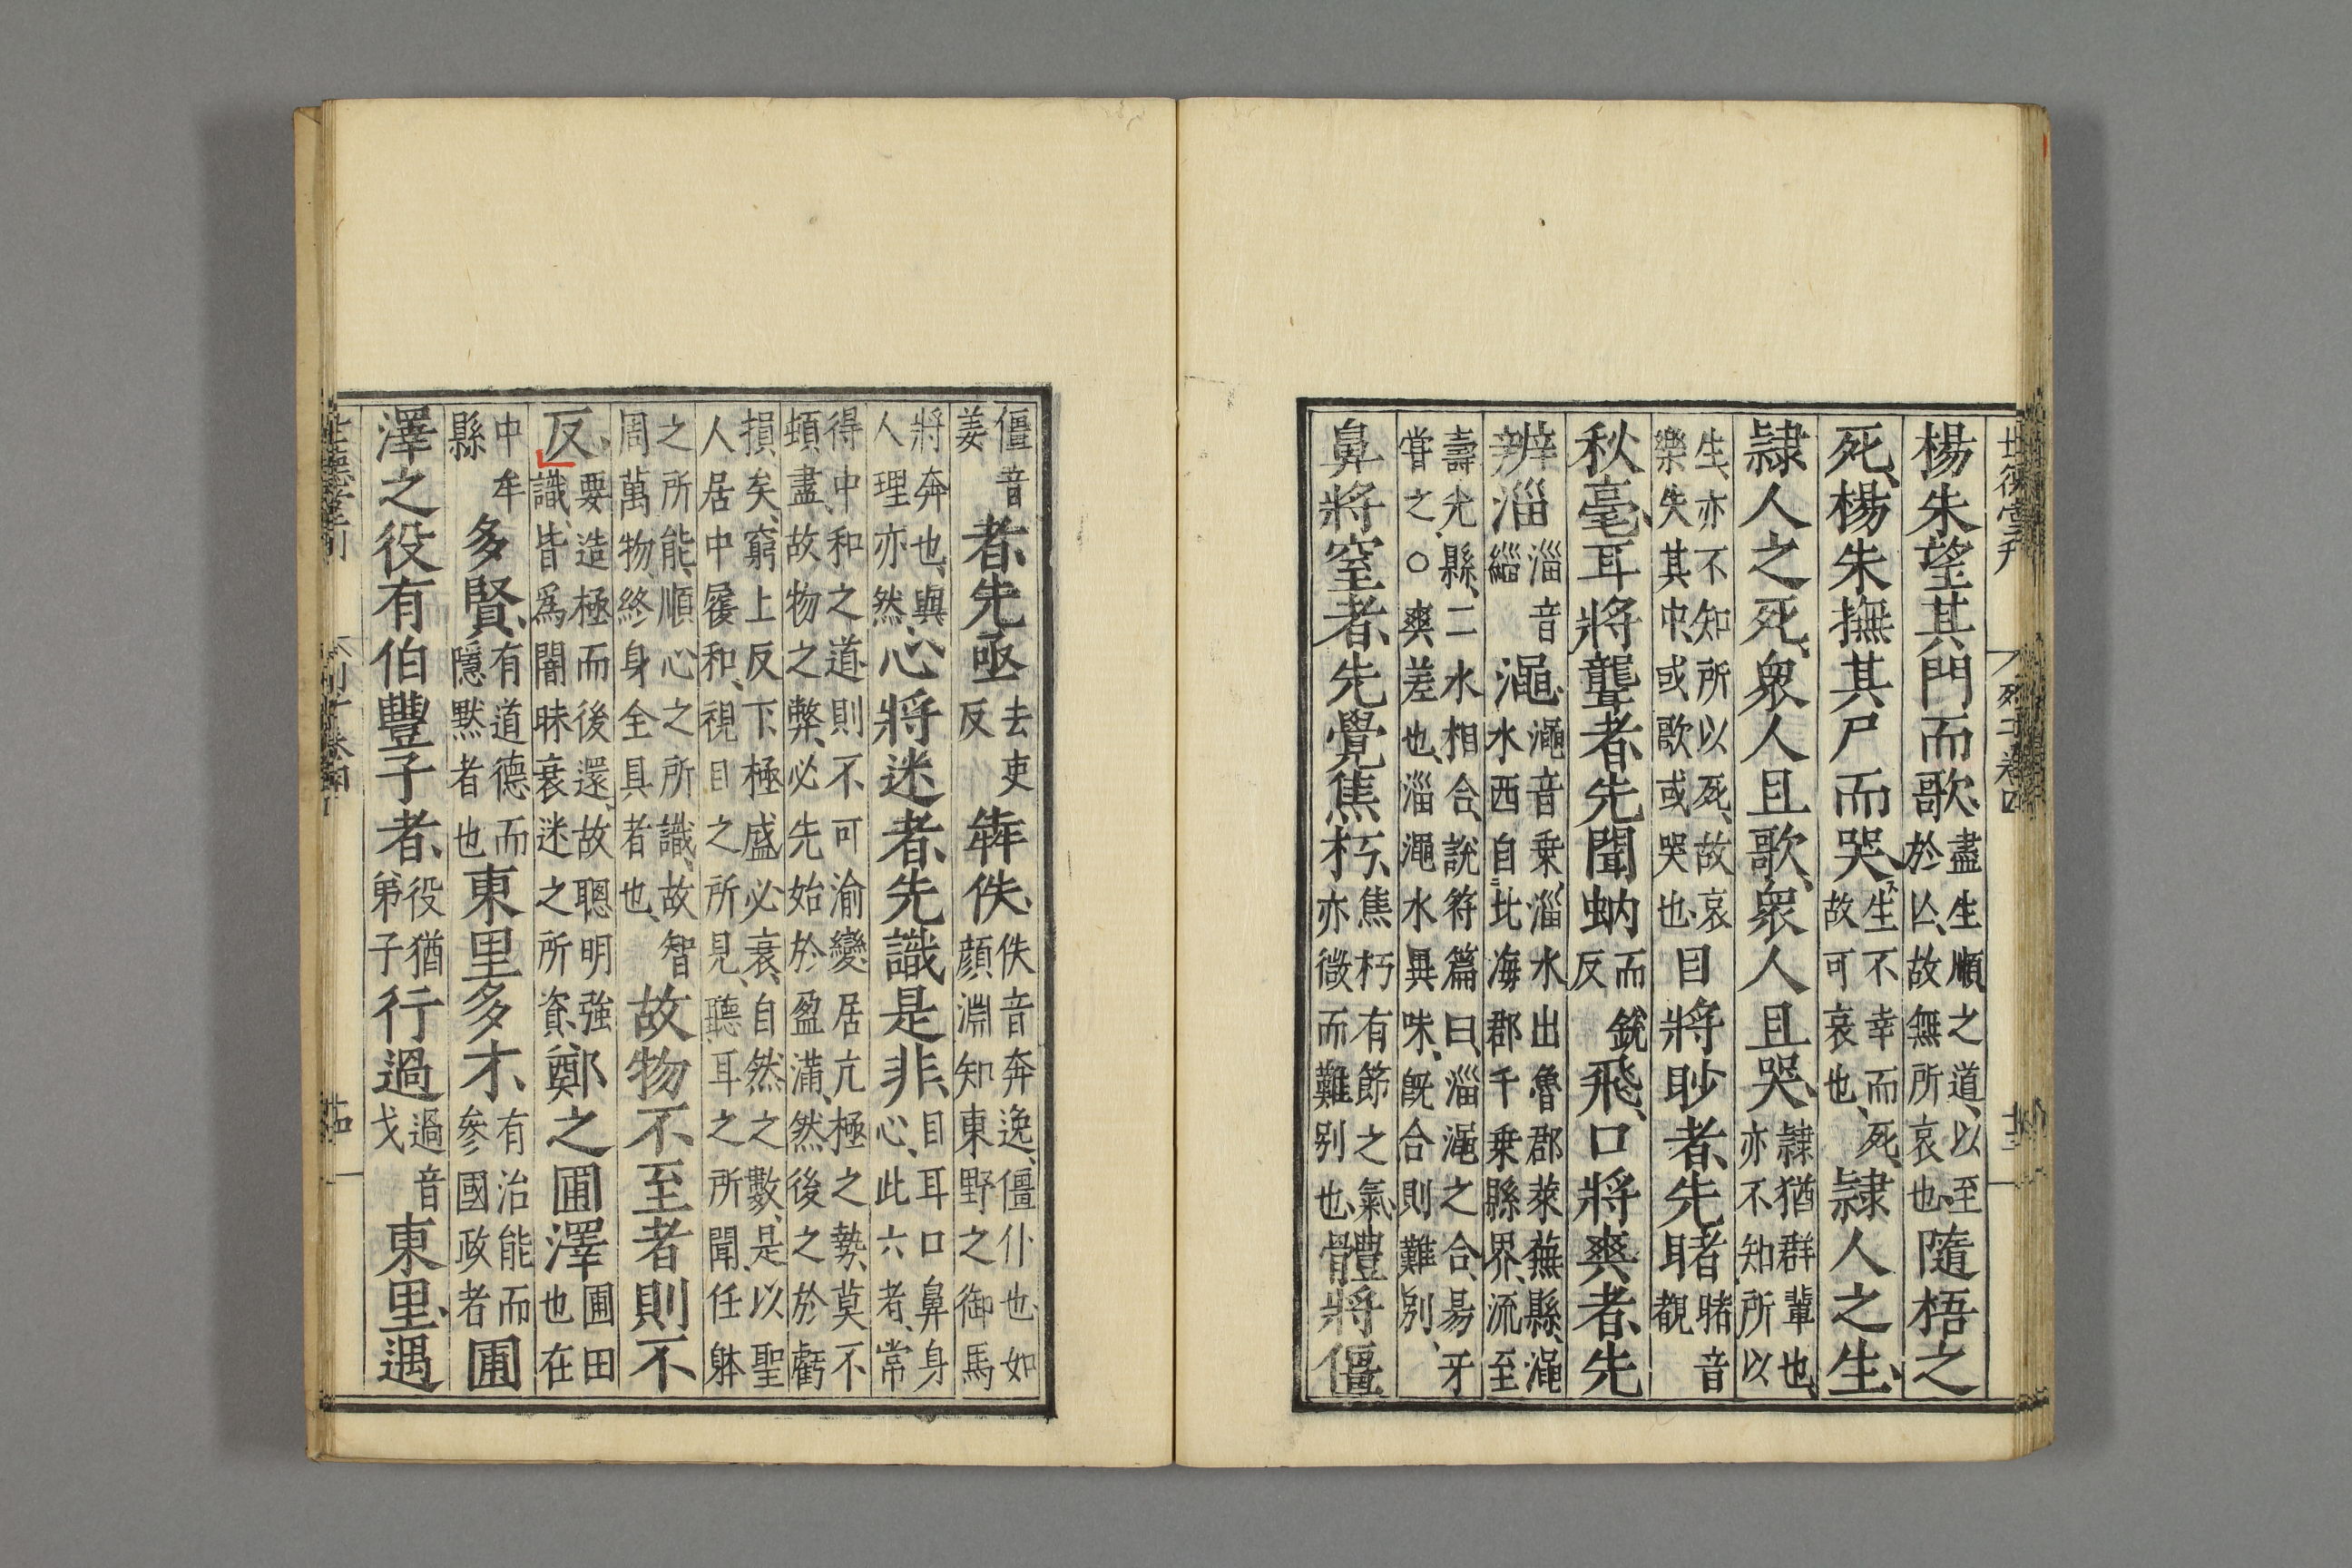 世德堂刋 列子卷四 十三
楊朱望其門而歌、盡生順之道、以至於亾、故無所哀也、隨梧之
死、楊朱撫其尸而哭、生不幸而死、故可哀也、隸人之生、
隸人之死、衆人且歌、衆人且哭、隸猶群輩也、亦不知所以
生、亦不知所以死、故哀樂失其中、或歌或哭也、目將眇者、先睹睹音覩
秋毫、耳將聾者、先聞蚋而銳反飛、口將爽者、先
辨淄淄音緇澠、澠音乗、淄水出魯郡萊蕪縣、澠水西自北海郡千乗縣界、流至
壽光縣、二水相合、說符篇曰、淄澠之合、易牙甞之、○爽差也、淄澠水異味、既合則難别、
鼻將窒者、先覺焦朽、焦朽有節之氣、亦微而難别也、體將僵
僵音姜者、先亟去吏反犇佚、佚音奔逸、僵仆也、如顔淵知東野之御馬
將奔也、與人理亦然、心將迷者、先識是非、目耳口鼻身心、此六者、常
得中和之道、則不可渝變、居亢極之勢、莫不頓盡、故物之弊、必先始於盈滿、然後之於虧
損矣、窮上反下、極盛必衰、自然之數、是以聖人居中履和、視目之所見、聽耳之所聞、任躰
之所能、順心之所識、故智周萬物、終身全具者也、故物不至者則不
反、要造極而後還、故聰明強識、皆爲闇昧衰迷之所資、鄭之圃澤圃田也在
中牟縣多賢、有道德而隱默者也東里多才、有治能而參國政者圃
澤之役有伯豐子者、役猶弟子行過過音戈東里、遇
世德堂刊 列子卷四 十四